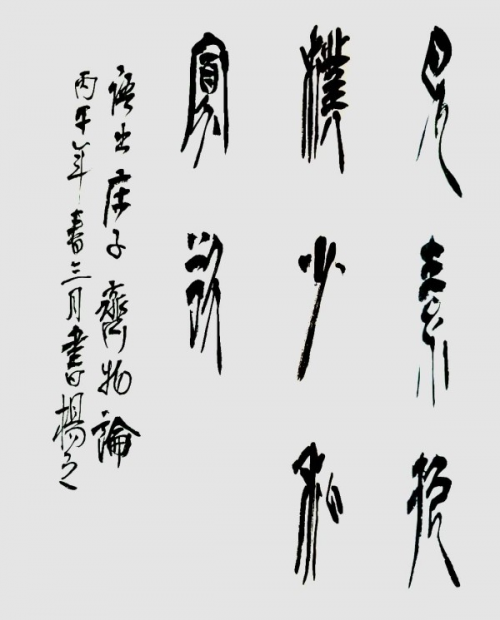 見素抱
樸少私
寡欲
語出庄子齊物論
丙午年春三月書楊